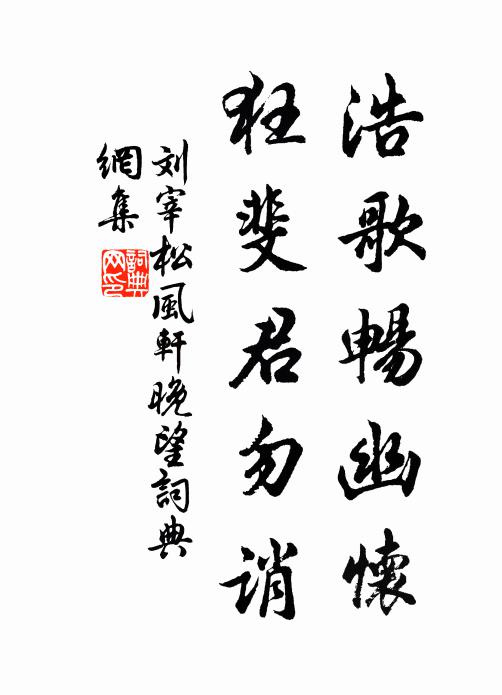 浩歌暢幽懷
狂斐君勿誚
刘宰松風軒晚望詞典
網集
詞典網印